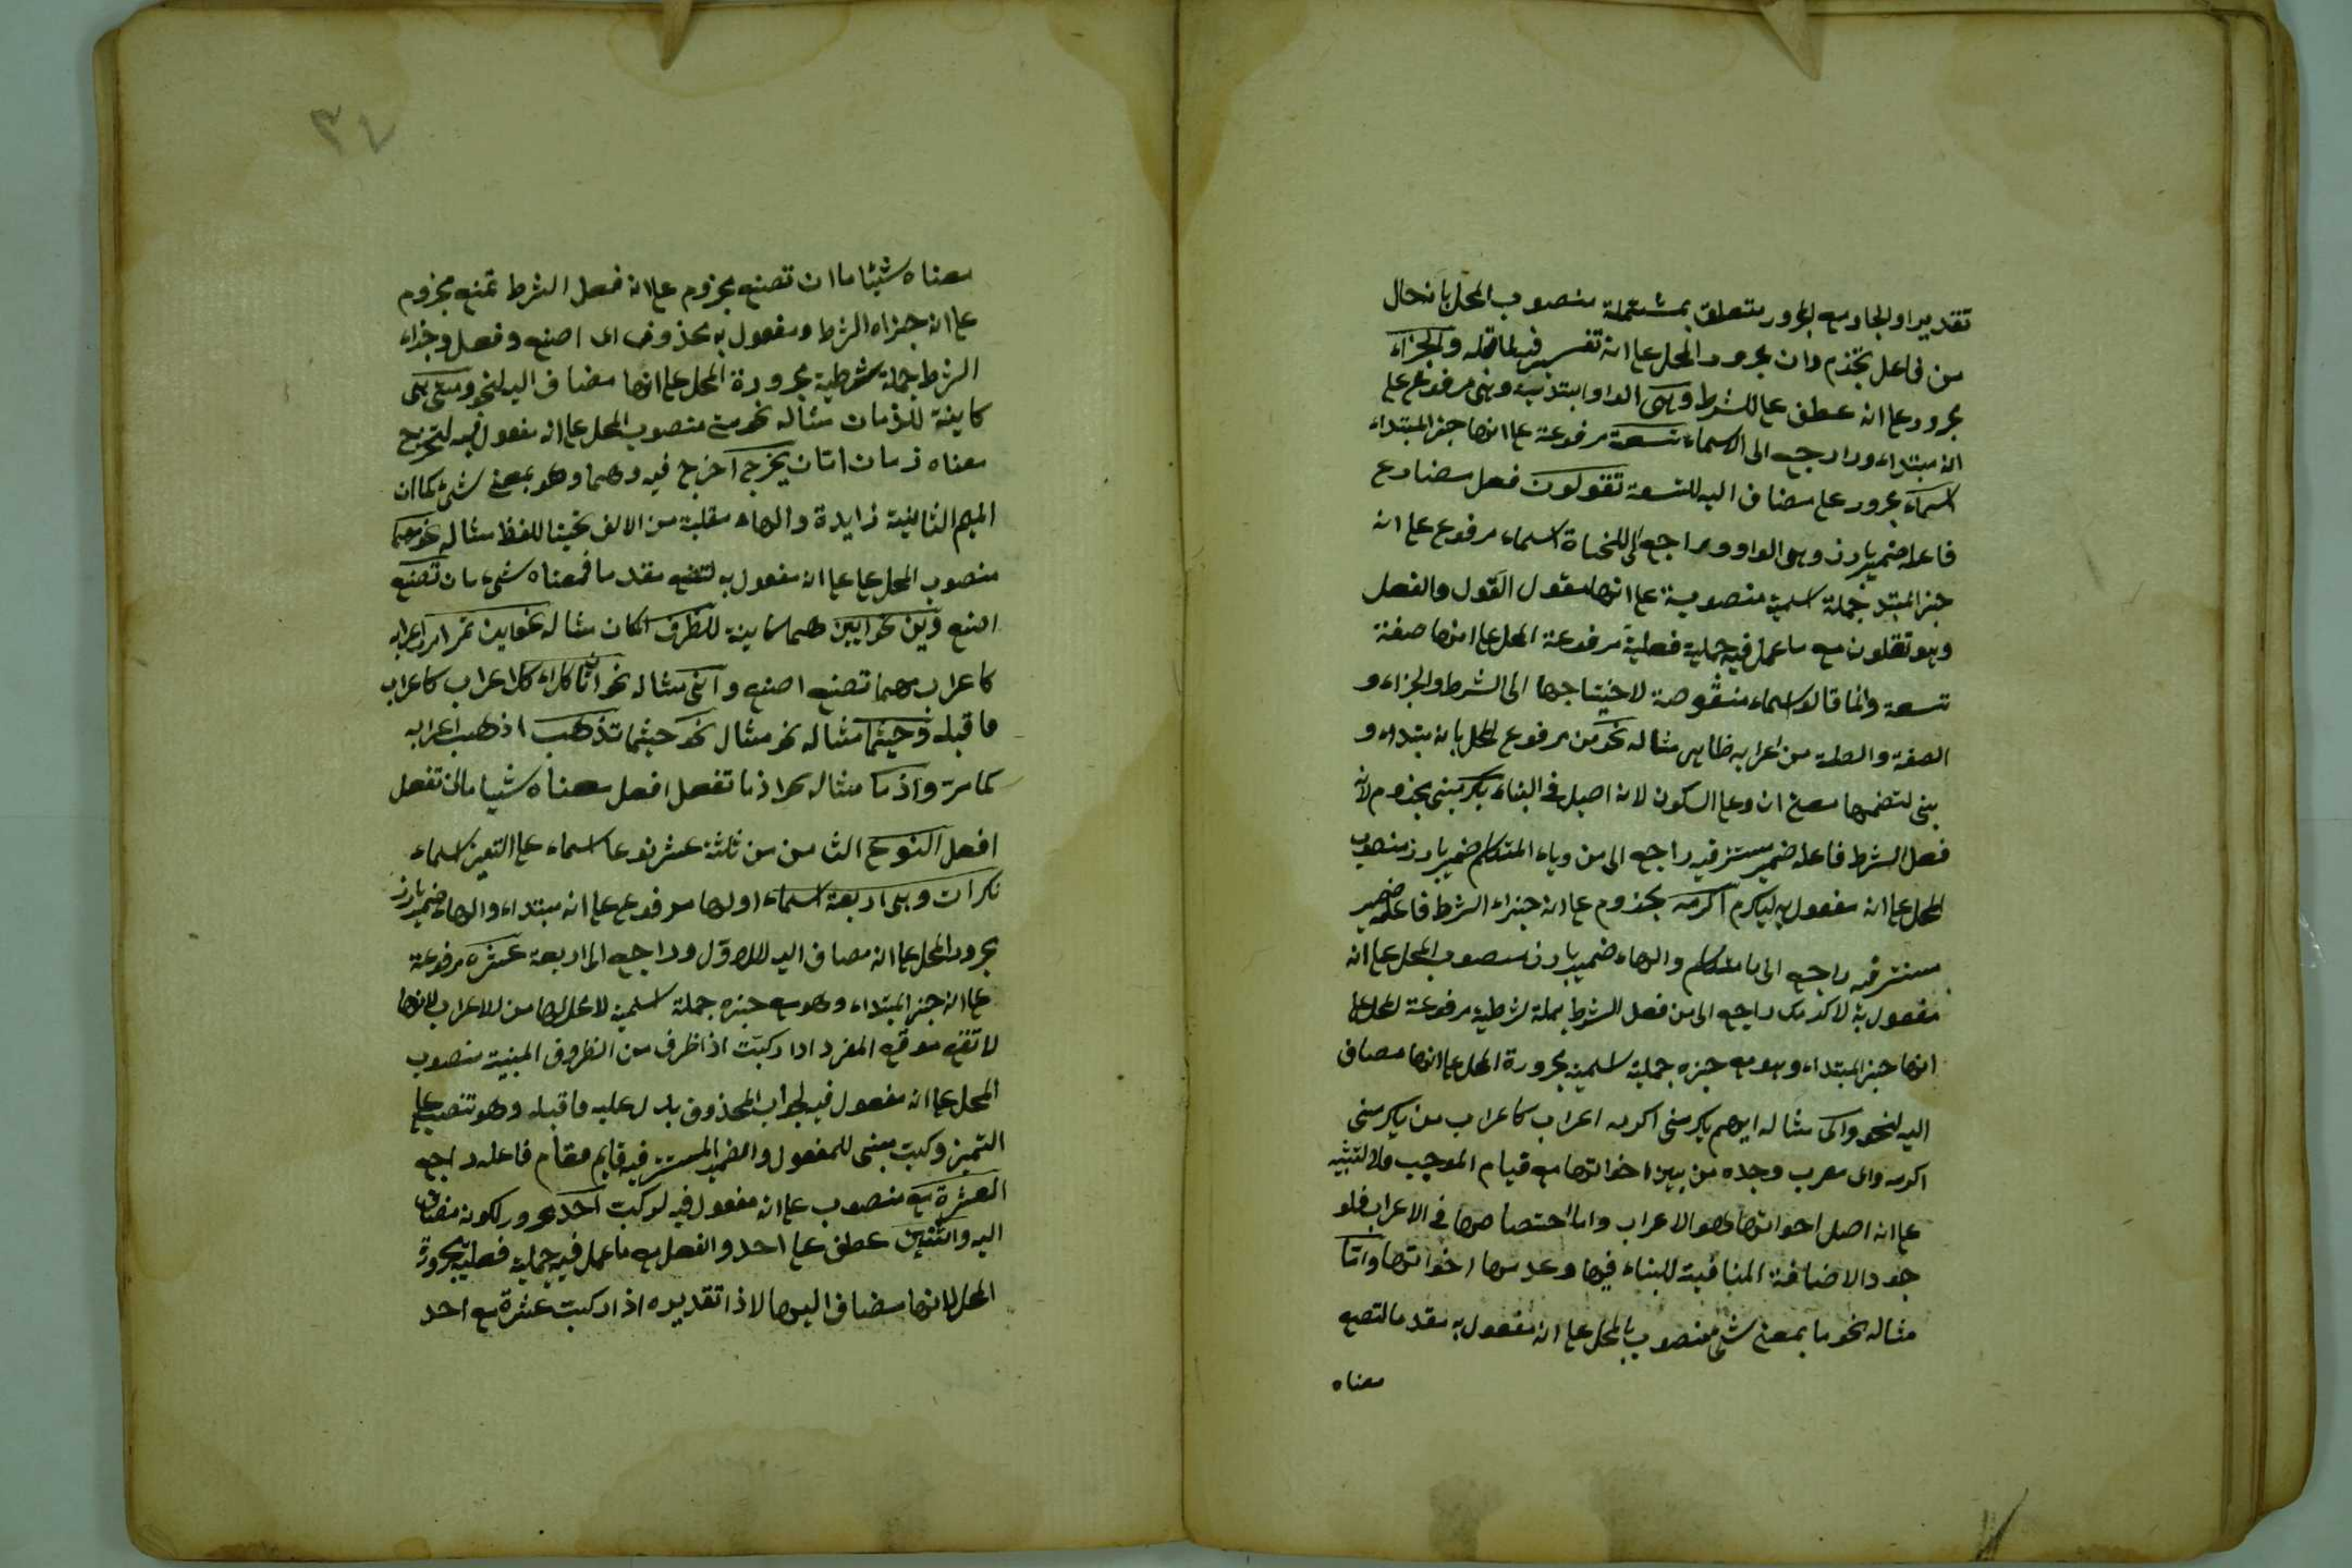 تقديرا والجار مع المجرور متعلق بمشتملة منصوب المحل بانه حال
من فاعل تجزم وان مجرور المحل على انه تفسير فيه لما قبله والجزاء
مجرور على انه عطف على الشرط وهى الواو ابتدئية وهى مرفوع على
انه مبتداء وراجع الى الاسماء تسعة مرفوعة على انها خبر المبتداء
اسماء مجرور على مضاف اليه للتسعة تقولون فعل مضارع
فاعله ضمير بارز وهى الواو وراجع الى للنحاة اسماء مرفوع على انه
خبر المبتد جملة اسمية منصوبة على انها مقول القول والفعل
وهو تقلون مع ما عمل فيه جملية فعلية مرفوعة المحل على انها صفة
تسعة وانما قالو اسماء منقوصة لاختياجها الى الشرط والجزاء و
الصفة والصلة من اعرابه ظاهر مثاله نحو من مرفوع المحل بانه مبتداء و
بنى لتضمنها معنى ان وعلى السكون لانه اصيل فى البناء يكرمنى مجزوم لانه
فعل الشرط فاعله ضمير مستتر فيه راجع الى من وياء المتكلم ضمير بارز منصوب
المحل على انه مفعول به ليكرم اكرمه مجزوم على انه جزاء الشرط فاعله ضمير
مستتر فيه راجع الى يا متكلم والهاء ضمير بارز منصوب المحل على انه
مفعول به لاكرمك راجع الى من فعل الشرط جملة شرطية مرفوعة المحل على
انها خبر المبتداء وهو مع خبره جملية اسمية مجرورة المحل على انها مضاف
اليه لنحو واى مثاله ايهم يكرمنى اكرمه اعراب كاعراب من يكرمنى
اكرمه واى معرب وحده من بين اخواتها مع قيام الموجب فلا لتنبيه
على انه اصل اخواتها وهو الاعراب واما اختصاصها فى الاعراب فلو
جود الاضافة المنافية للبناء فيها وعدمها اخواتها واما
مثاله نحو ما بمعنى شئ منصوب المحل على انه مفعول به مقدما لتصنع
معناه
٣٤
معناه شيئا ما ان تصنع مجزوم على انه فعل الشرط تمنع مجزوم
على انه جزاه الشرط ومفعول به محذوف اى اصنع وفعل وجزاء
الشرط جملة شرطية مجرورة المحل على انها مضاف اليه لنحو ومتى هى
كاينة للزمان مثاله نحو متى منصوب المحل على انه مفعول فيه لتخرج
معناه زمان اتان يخرج اخرج فيه ومهما وهو بمعنى شئ كما ان
الميم الثانية زايدة والهاء مقلبة من الالف تحسنا للفظ مثاله نحو مهما
منصوب المحل على على انه مفعول به لتصنع مقدما فمعناه شئ ما ان تصنع
اصنع واين نحو اين هما كاينة للظرف المكان مثاله نحو اين تمر امر اعرابه
كاعراب مهما تصنع اصنع وانى مثاله نحو انى كلاء كلاعراب كاعراب
ما قبله وحيثما مثاله نحو مثال نحو حيثما تذهب اذهب اعرابه
كما مر واذما مثاله نحو اذما تفعل افعل معناه شيا ما ان تفعل
افعل النوع الثامن من ثلثة عشر نوعا اسماء على التميز اسماء
نكرات وهى اربعة اسماء اولها مرفوع على انه مبتداء والهاء ضمير بارز
مجرور المحل على انه مضاف اليه للاول وراجع الى اربعة عشرة مرفوعة
على انه خبر المبتداء وهو مع خبره جملة اسمية لا محل لها من الاعراب لانها
لا تقع موقع المفرد اذا ركبت اذا ظرف من الظروف المبنية منصوب
المحل على انه مفعول فيه لجواب المحذوف يدل عليه ما قبله وهو تنصب على
التميز وركبت مبنى للمفعول والضمير المستتر فيه قايم مقام فاعله راجع
العشرة مع منصوب على انه مفعول فيه لركبت احد مجرور لكونه مضاف
اليه واثنين عطف على احد والفعل مع ما عمل فيه جملية فعلية مجرورة
المحل لانها مضاف اليها لاذا تقديره اذا ركبت عشرة مع احد